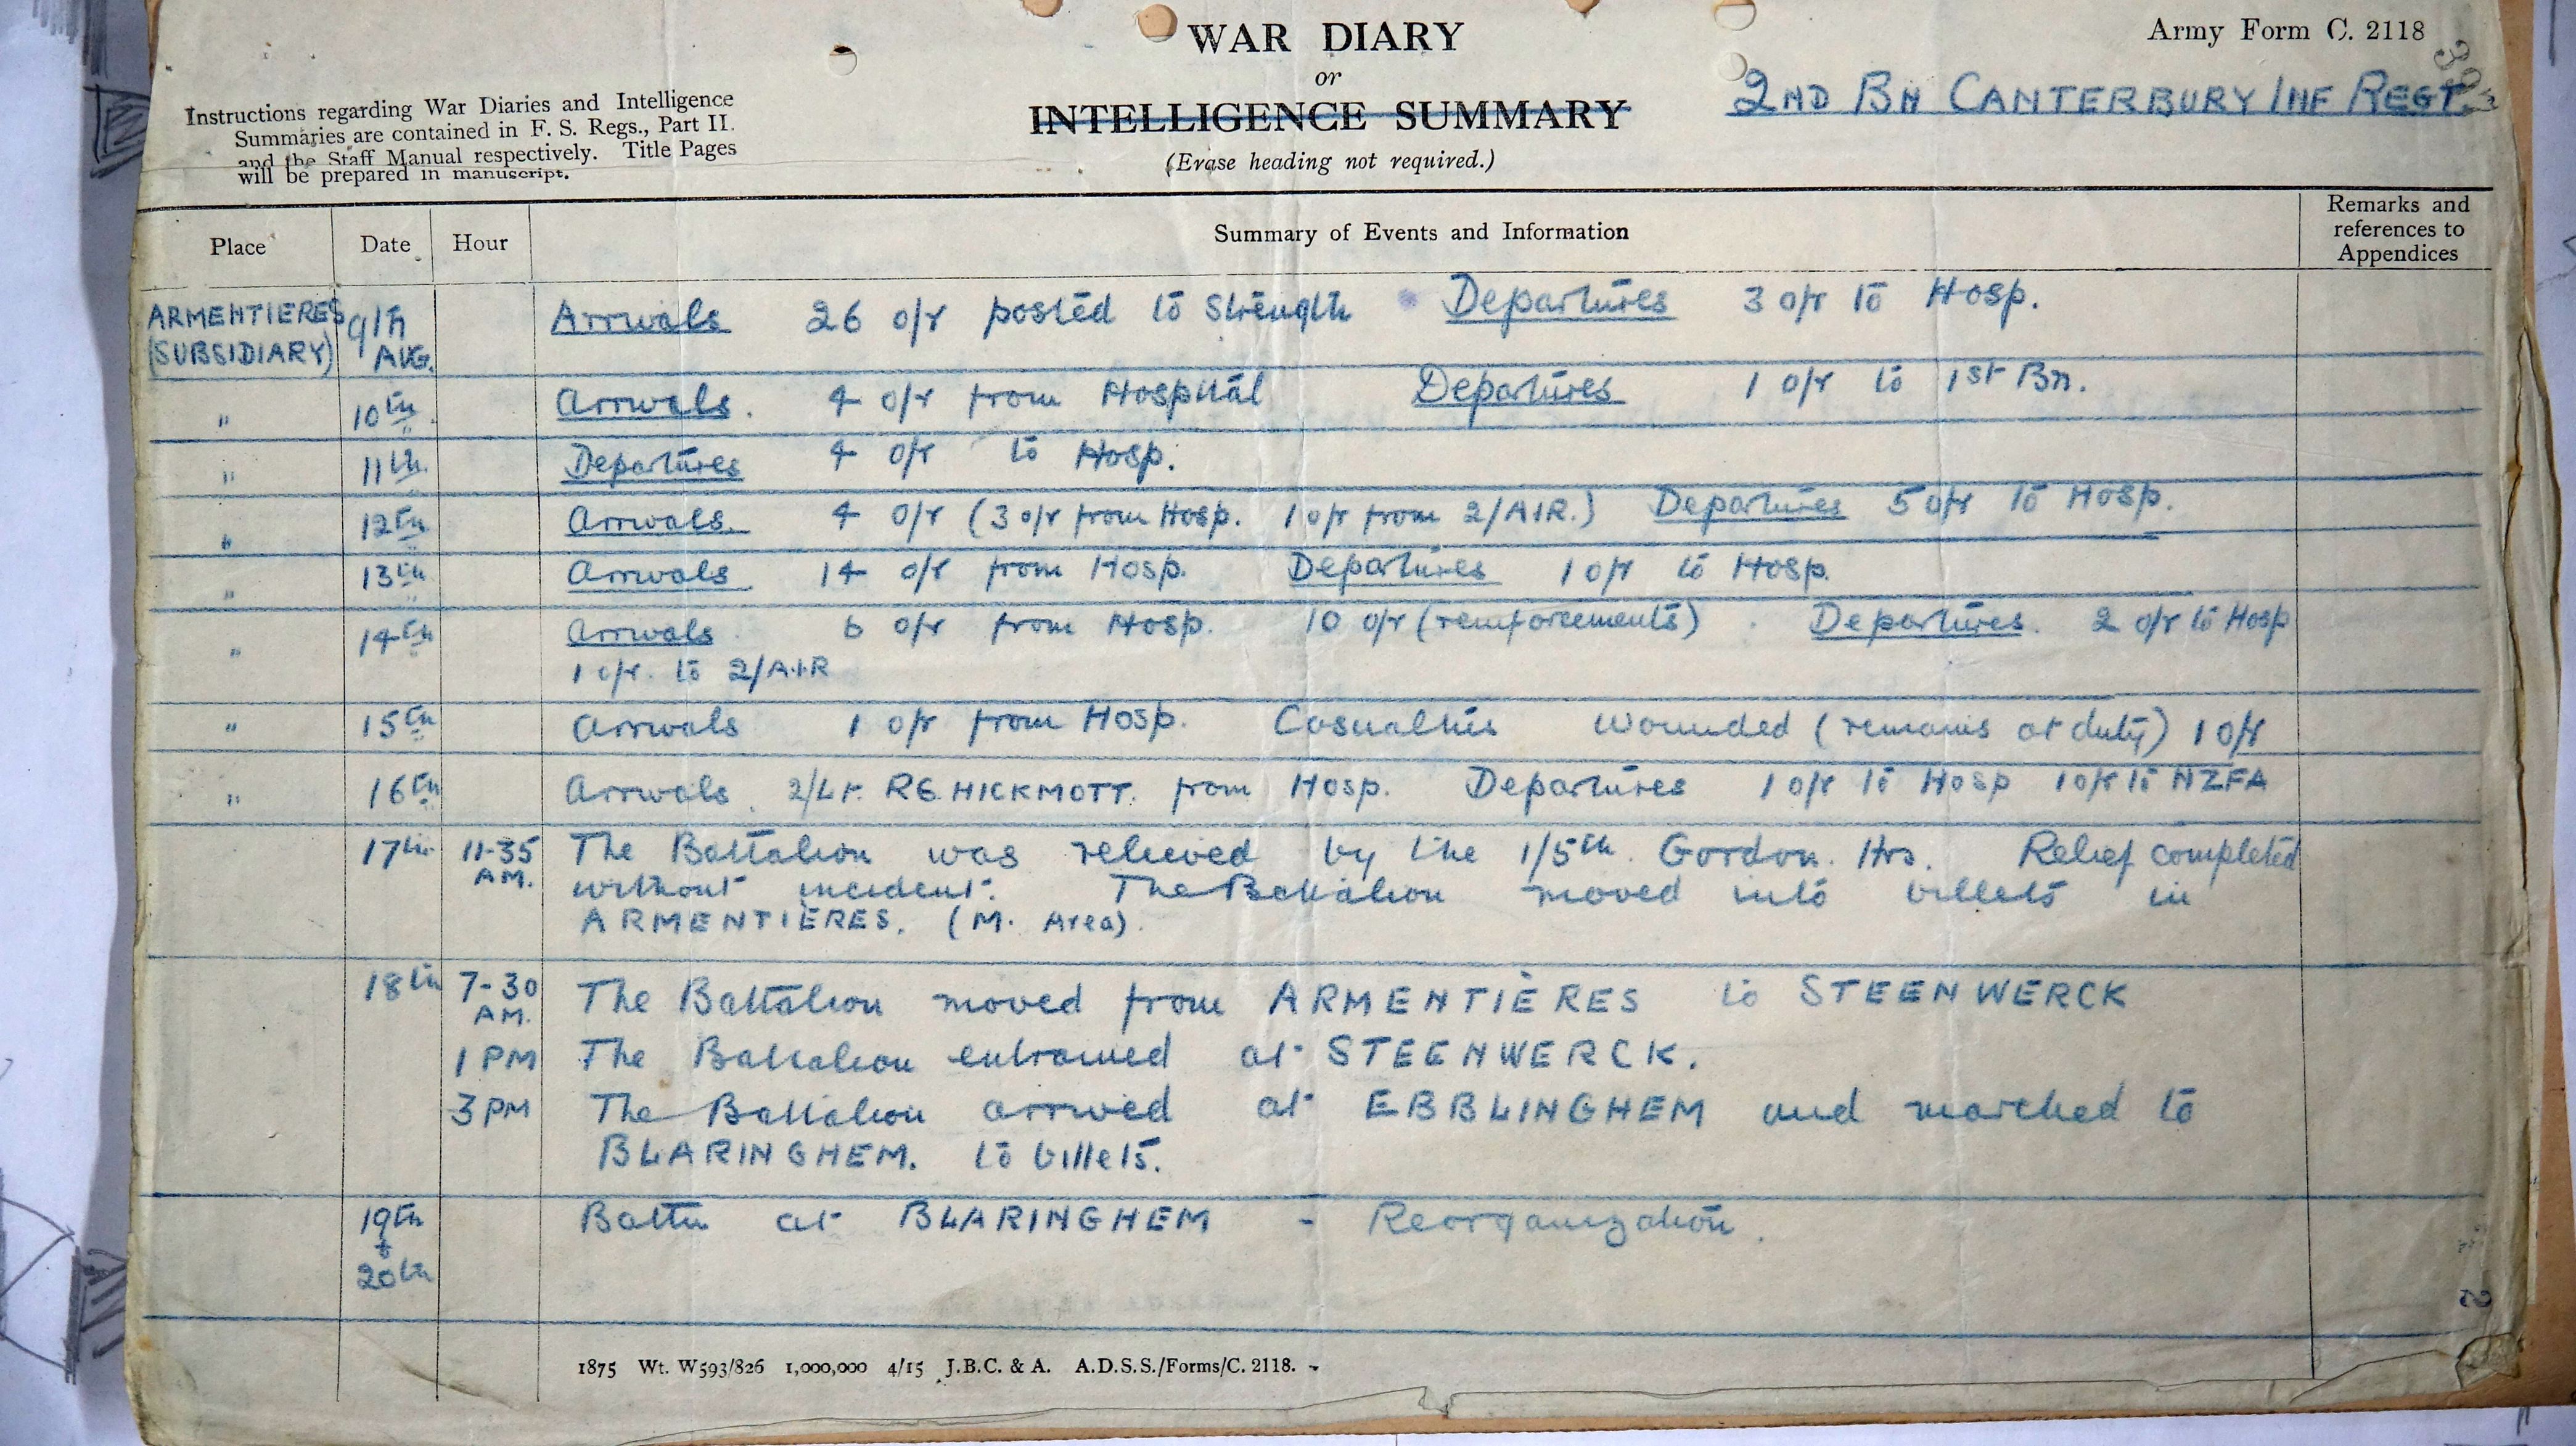 WAR DIARY
or
INTELLIGENCE SUMMARY
(Erase heading not required.)
Army Form C. 2118
2ND BN CANTERBURY INF REGT.
Instructions regarding War Diaries and Intelligence
Summaries are contained in F. S. Regs., Part II.
and the Staff Manual respectively. Title Pages
will be prepared in manuscript.
Place Date Hour Summary of Events and Information Remarks and
references to
Appendices
ARMENTIERES 9th Arrivals 26 o/r posted to Strength Departures 3 o/r to Hosp.
(SUBSIDIARY) AUG.
" 10th Arrivals. 4 o/r from Hospital Departures 1 o/r to 1st Bn.
" 11th Departures 4 o/r to Hosp.
" 12th Arrivals. 4 o/r (3 o/r from Hosp. 1 o/r from 2/AIR.) Departures 5 o/r to Hosp.
" 13th Arrivals 14 o/r from Hosp. Departures 1 o/r to Hosp.
" 14th Arrivals 6 o/r from Hosp. 10 o/r (reinforcements). Departures. 2 o/r to Hosp
1 o/r. to 2/A.I.R
" 15th Arrivals 1 o/r from Hosp. Casualties Wounded (remains at duty) 1 o/r
" 16th Arrivals. 2/Lt. R.G. HICKMOTT. from Hosp. Departures 1 o/r to Hosp 1 o/r to NZFA
17th 11-35 The Battalion was relieved by the 1/5th. Gordon. Hrs. Relief completed
AM. without incident. The Battalion moved into billets in
ARMENTIÈRES. (M. Area).
18th 7-30 The Battalion moved from ARMENTIÈRES to STEENWERCK
AM.
1 PM The Battalion entrained at STEENWERCK.
3 PM The Battalion arrived at EBBLINGHEM and marched to
BLARINGHEM. to billets.
19th Battn at BLARINGHEM - Reorganization.
+
20th
1875 Wt. W593/826 1,000,000 4/15 J.B.C. & A. A.D.S.S./Forms/C. 2118.